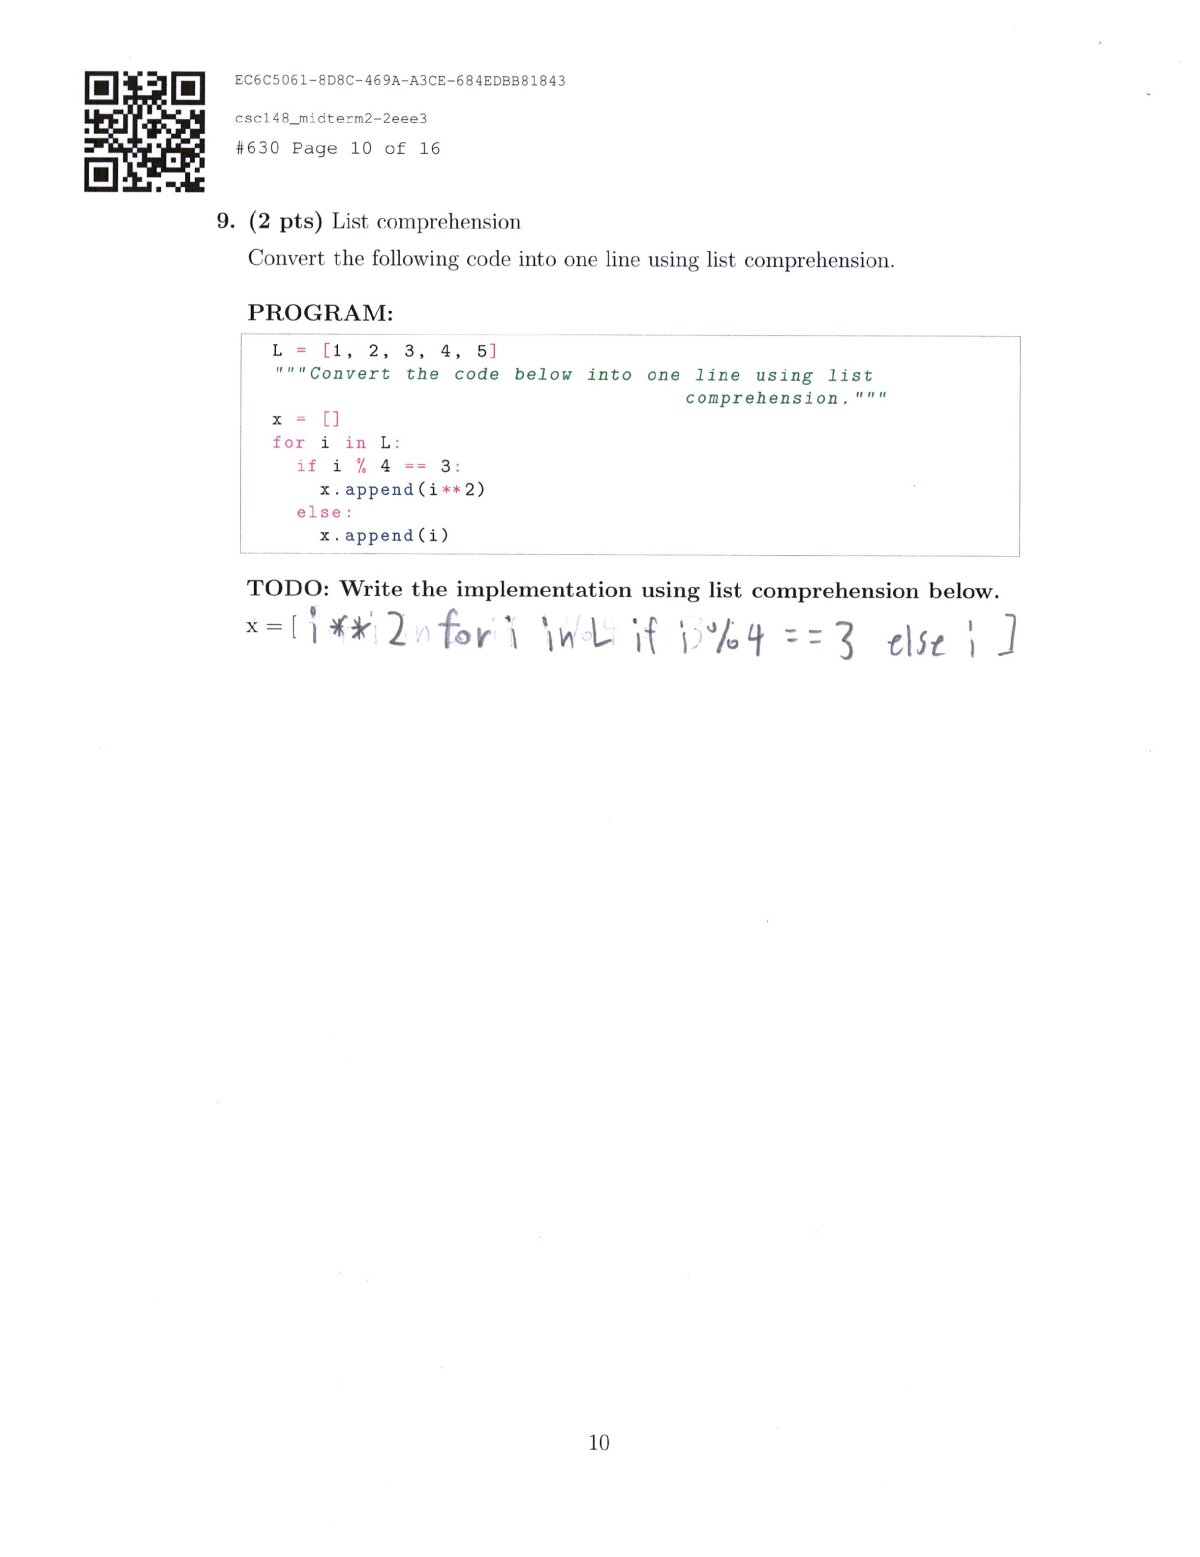 EC6C5061-8D8C-469A-A3CE-684EDBB81843
csc148_midterm2-2eee3
#630 Page 10 of 16
9. (2 pts) List comprehension
Convert the following code into one line using list comprehension.
PROGRAM:
L = [1, 2, 3, 4, 5]
"""Convert the code below into one line using list
comprehension."""
x = []
for i in L:
if i % 4 == 3:
x.append(i**2)
else:
x.append(i)
TODO: Write the implementation using list comprehension below.
x = [ i**2 for i in L if i%4 == 3 else i ]
10